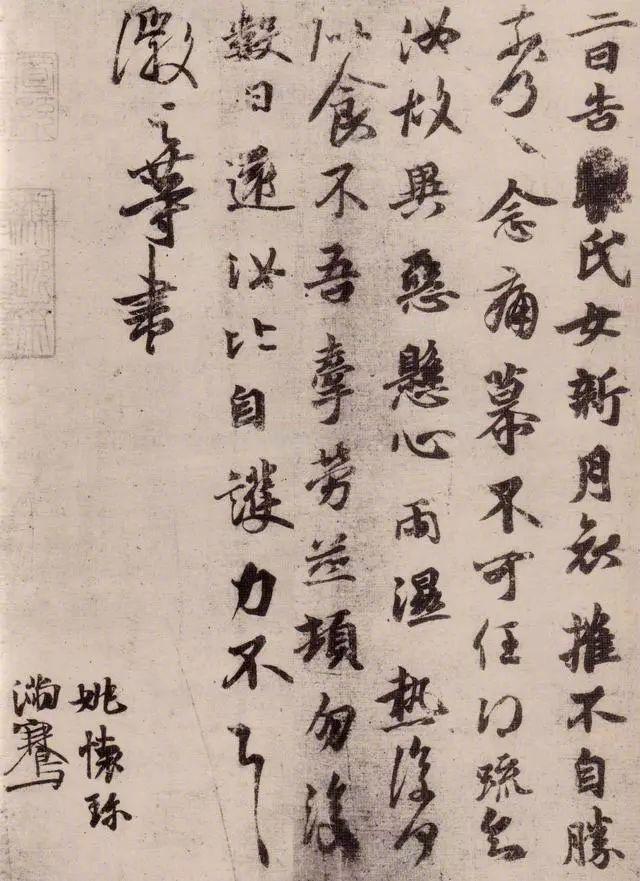 二日告氏女新月哀摧不自勝
奈何奈何念痛慕不可任得疏知
汝故異惡懸心雨濕熱復何
似食不吾牽勞並頓勿復
數日還汝比自護力不
徽之等書
姚懷珍
滿騫